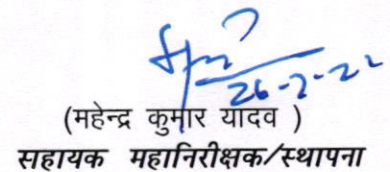 26-7-22
(महेन्द्र कुमार यादव )
सहायक महानिरीक्षक/स्थापना